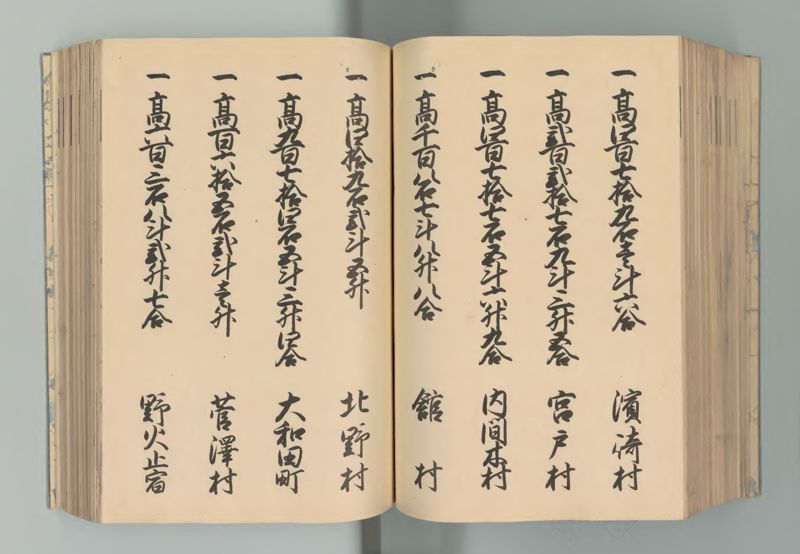 一高四百七拾九石壱斗六合 濱崎村
一高弐百弐拾七石九斗三升五合 宮戸村
一高四百七拾七石五斗六升九合 内間木村
一高千百八石七斗八升八合 舘村
一高四拾九石弐斗五升 北野村
一高九百七拾四石五斗三升四合 大和田町
一高百六拾五石弐斗壱升 菅澤村
一高六百三石八斗弐升七合 野火止宿